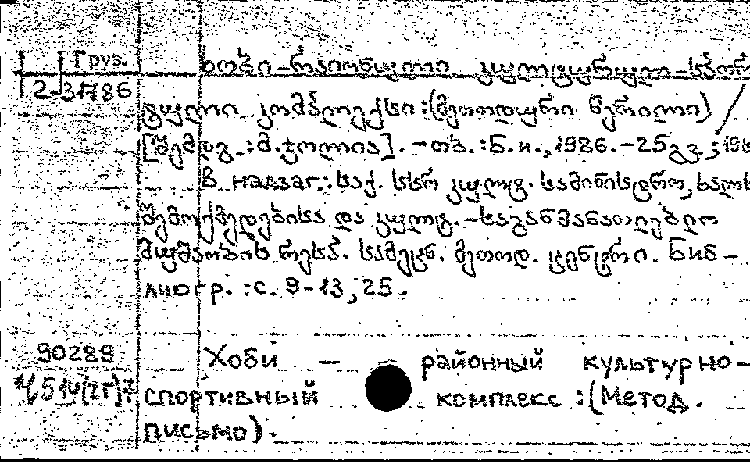 Груз.
ხობი-რაიონული კულტურულ-სპორ
2-3486
ტული კომპლექსი:(მეთოდური წერილი)
[შემდგ.:მ.ჭოლია].-თბ.:Б.и.,1986.-25გვ.;
В надзаг.:საქ. სსრ კულტ. სამინისტრო, ხალხ
შემოქმედებისა და კულტ.-საგანმანათლებლო
მუშაობის რესპ. სამეცნ. მეთოდ. ცენტრი. Биб-
лиогр.:с. 9-13,25.
90289 Хоби — районный культурно-
спортивный комплекс:(Метод.
письмо).